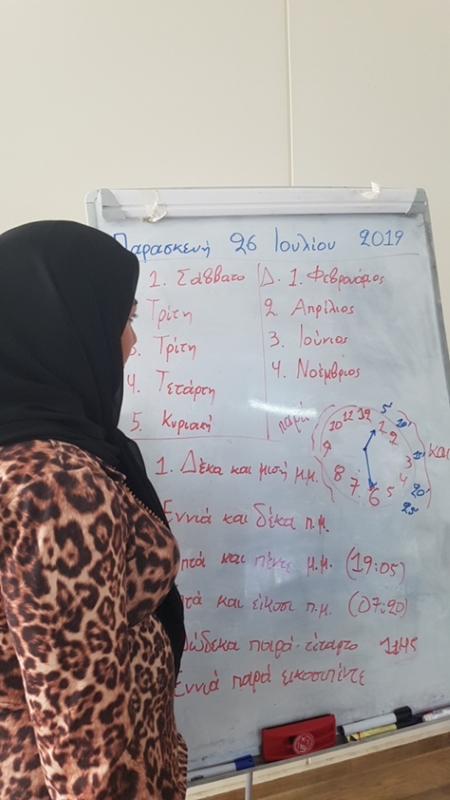 Παρασκευή 26 Ιουλίου 2019
1. Σάββατο
Τρίτη
3. Τρίτη
4. Τετάρτη
5. Κυριακή
Δ. 1. Φεβρουάριος
2. Απρίλιος
3. Ιούνιος
4. Νοέμβριος
παρά
και
12
1
2
3
4
5
6
7
8
9
10
11
5'
10'
20'
25'
1. Δέκα και μισή μ.μ.
Εννιά και δέκα π.μ.
και πέντε μ.μ. (19:05)
και είκοσι π.μ. (07:20)
παρά τέταρτο 1145
Εννιά παρά εικοσιπέντε